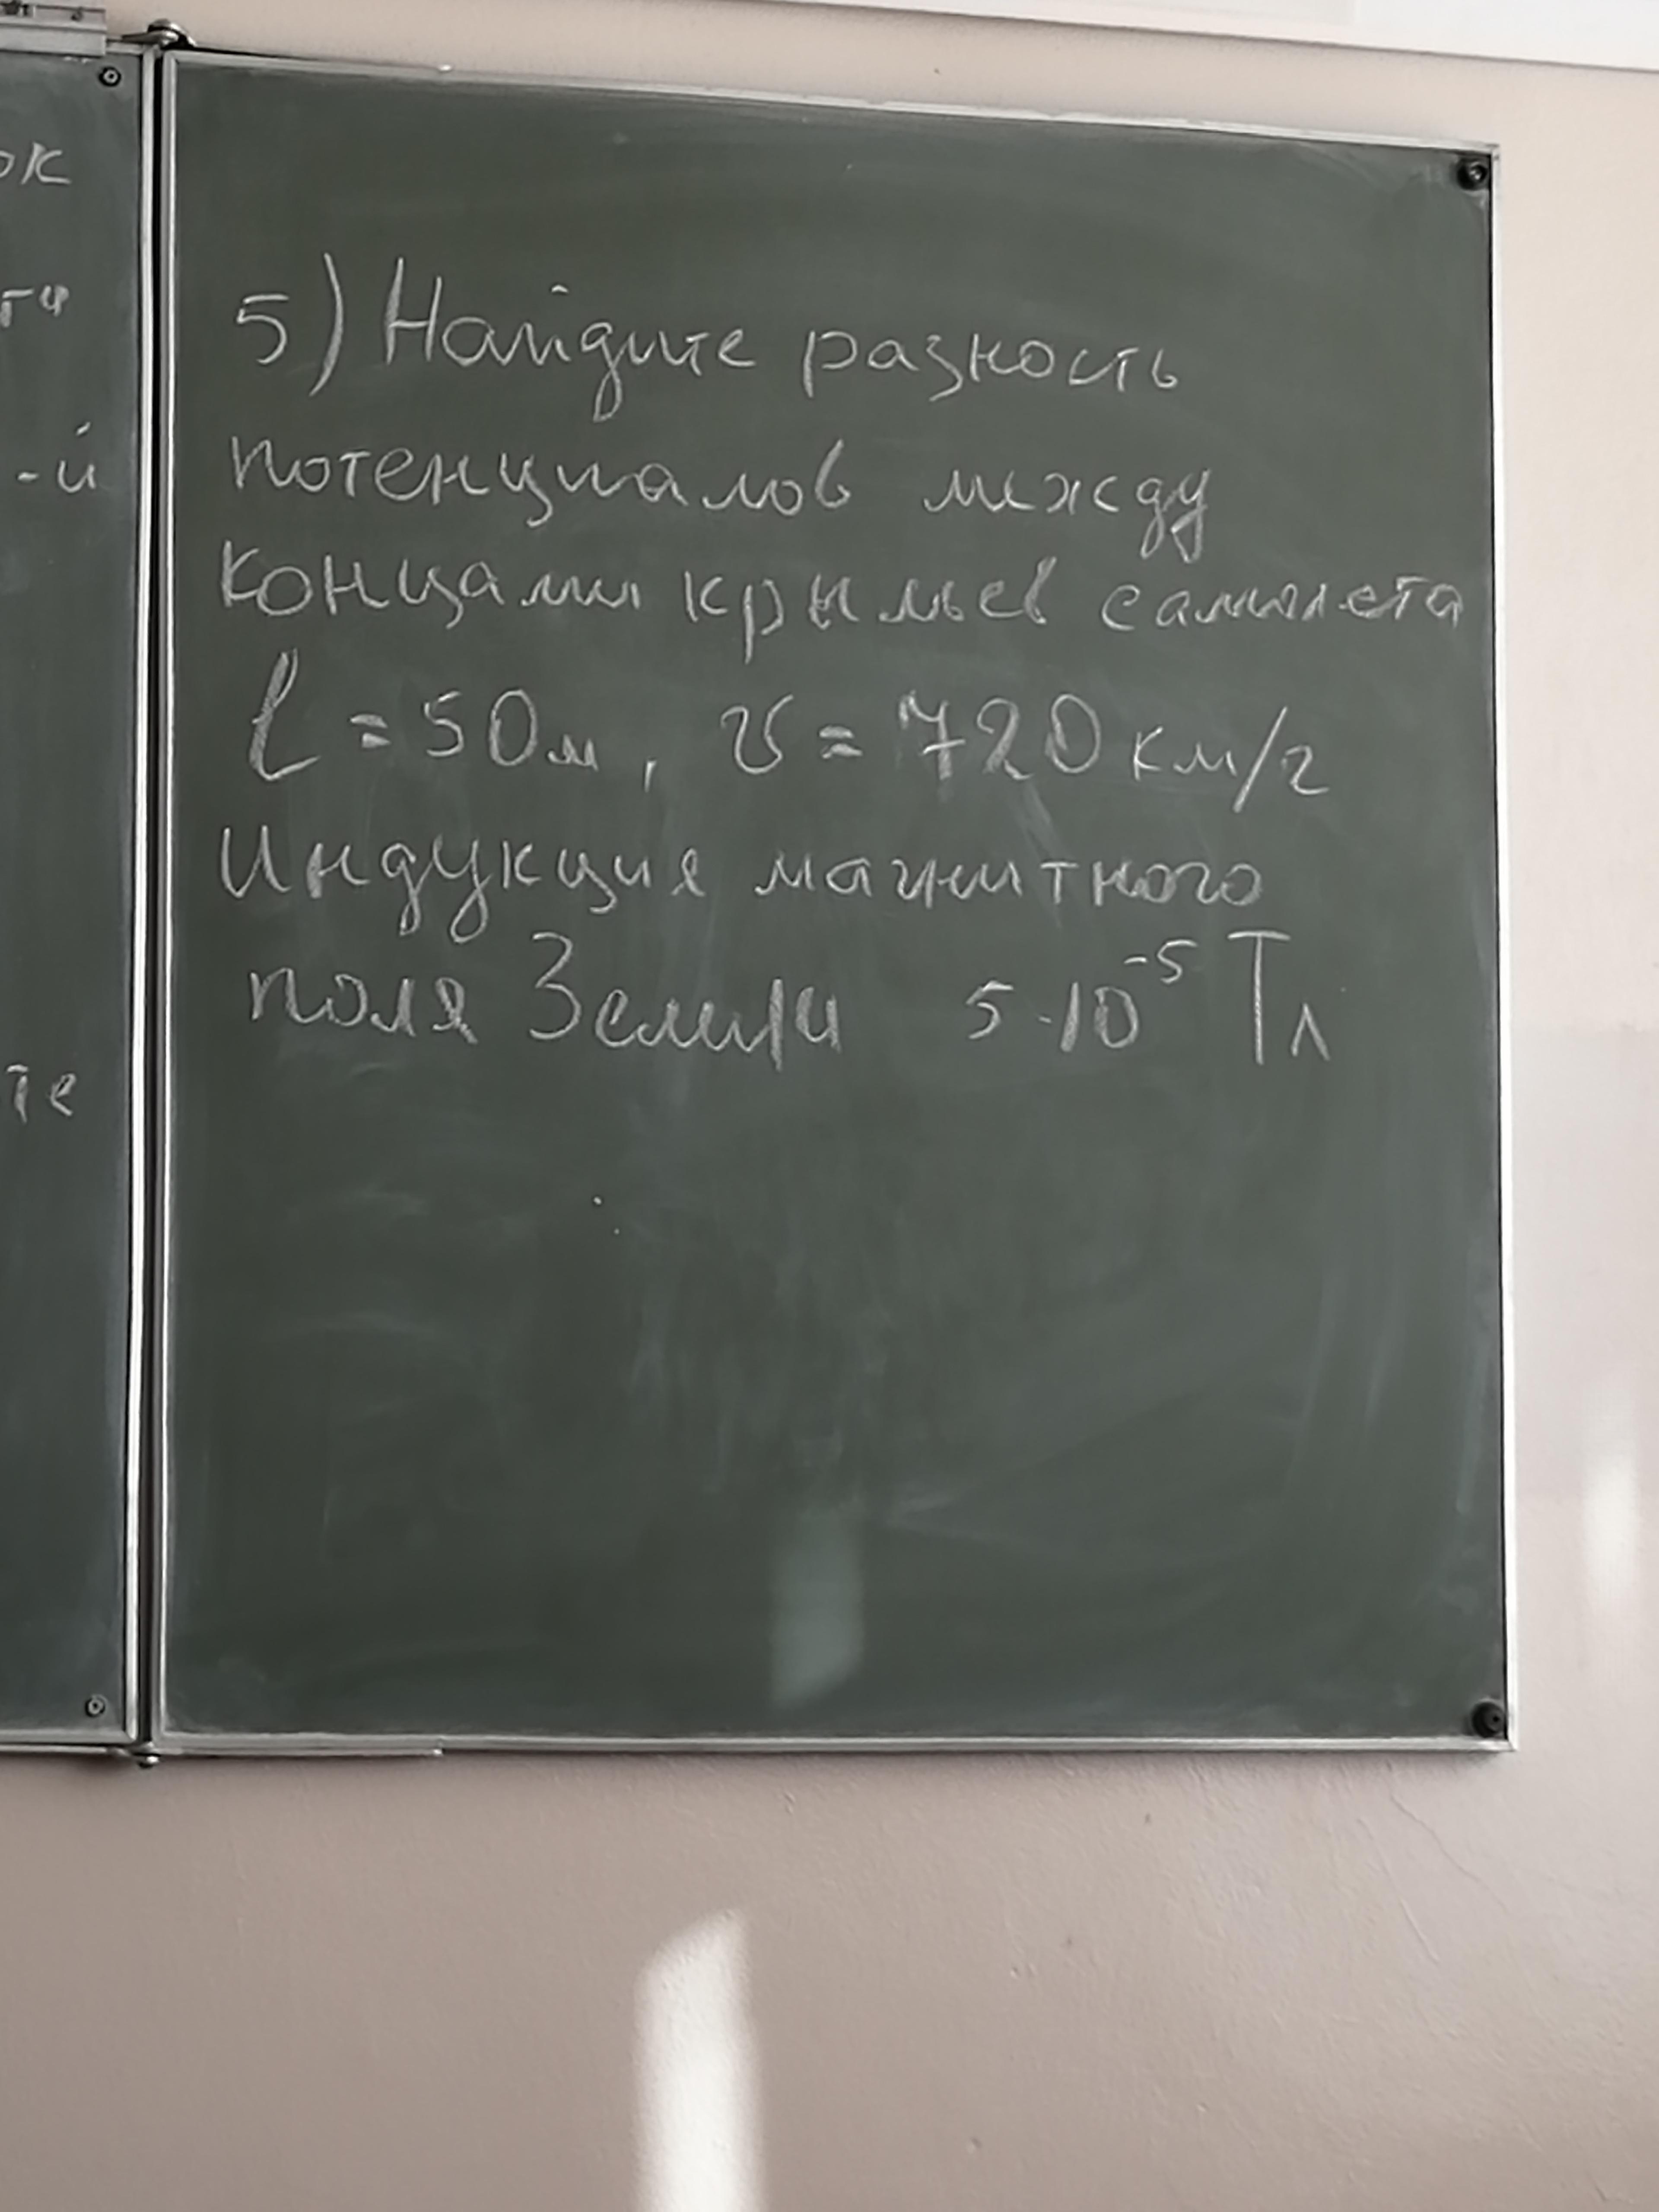 ок
-й
те
5) Найдите разность
потенциалов между
концами крыльев самолета
l = 50м, v = 720 км/г
Индукция магнитного
поля Земли 5·10⁻⁵ Тл